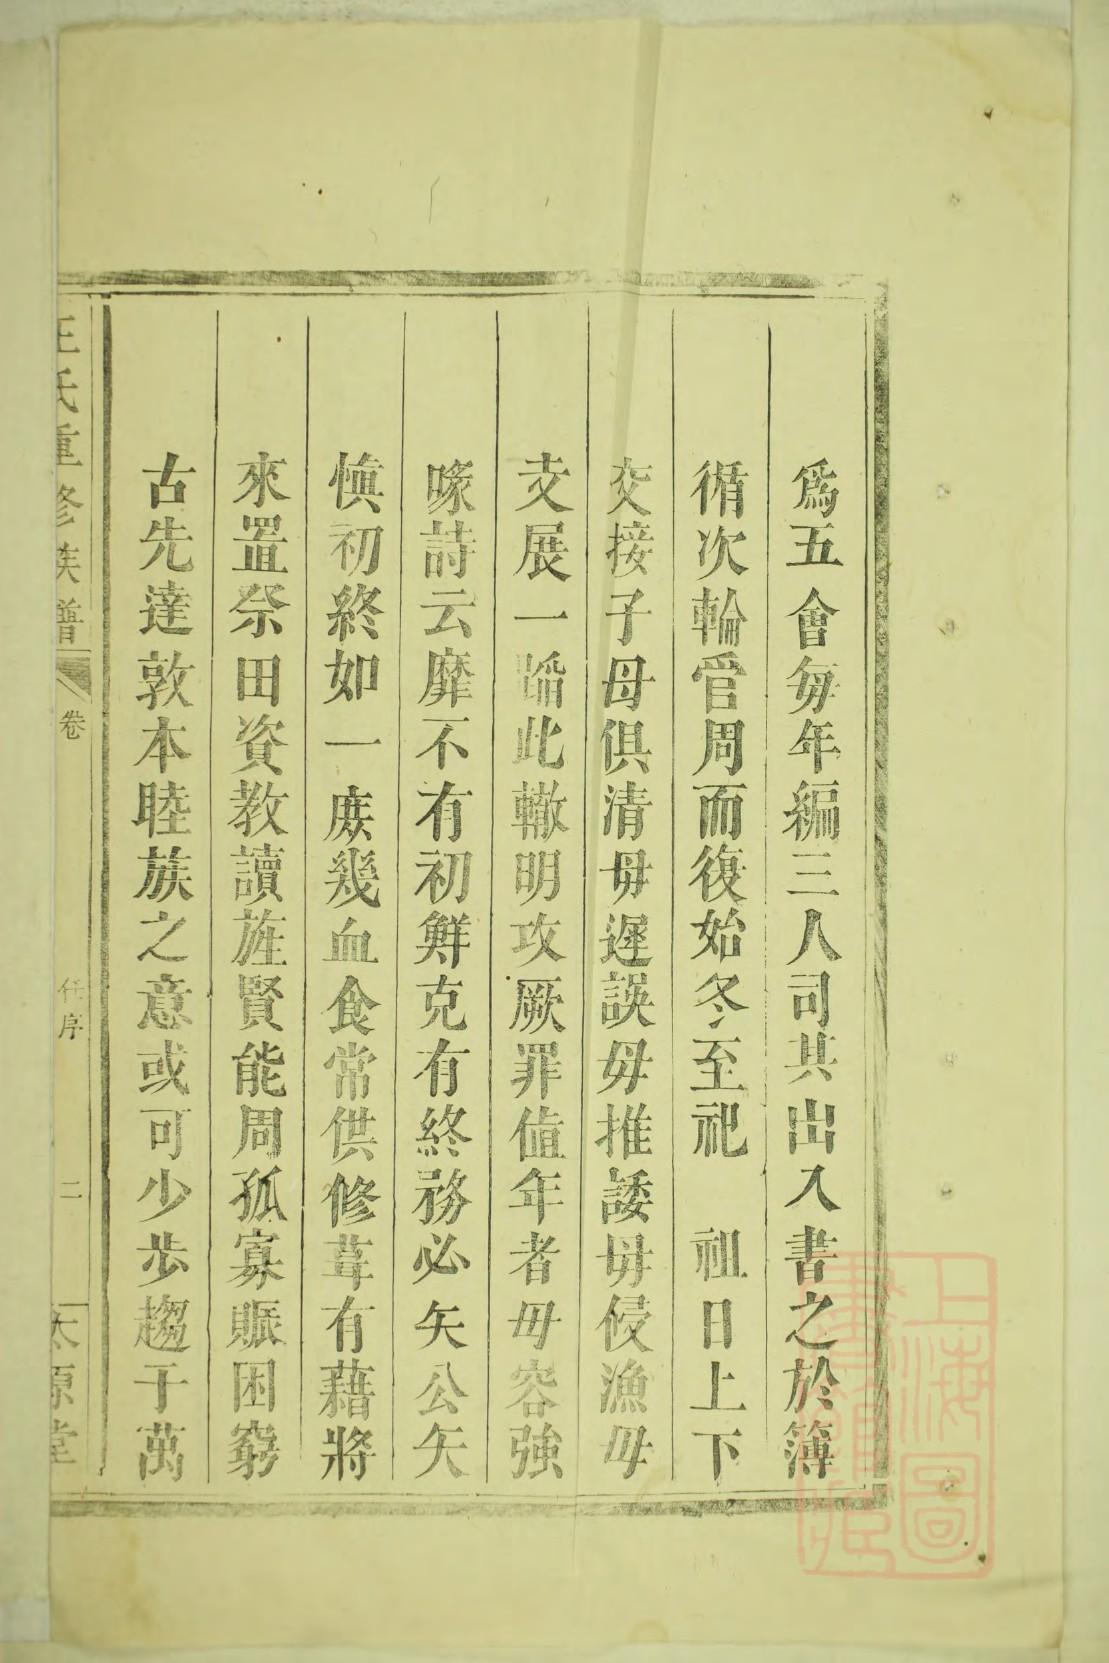 爲五會每年編三人司其出入書之於簿
循次輪管周而復始冬至祀　祖日上下
交接子母俱清毋遲誤毋推諉毋侵漁毋
支展一蹈此轍明攻厥罪值年者毋容強
喙詩云靡不有初鮮克有終務必矢公矢
慎初終如一庶幾血食常供修葺有藉將
來置祭田資教讀旌賢能周孤寡賑困窮
古先達敦本睦族之意或可少步趨于萬
王氏重修族譜
卷
任序
二
太原堂
上海圖
書館藏